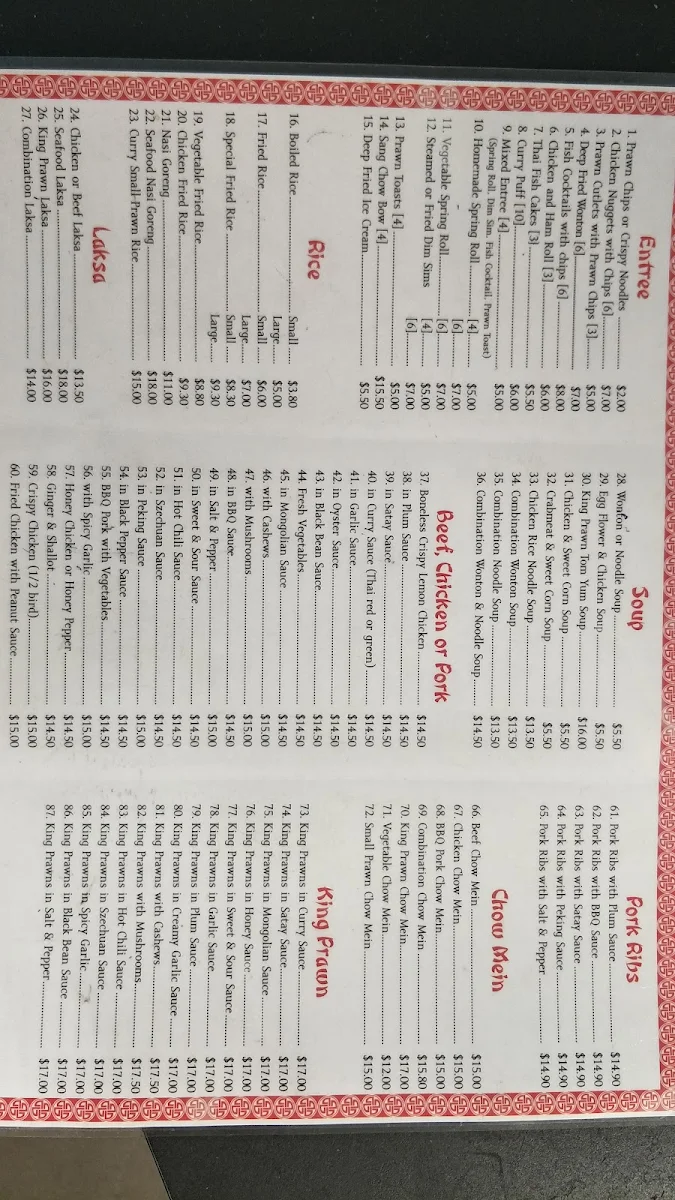 Entree
1. Prawn Chips or Crispy Noodles ........ $2.00
2. Chicken Nuggets with Chips [6] ........ $7.00
3. Prawn Cutlets with Prawn Chips [3] ........ $5.00
4. Deep Fried Wonton [6] ........ $7.00
5. Fish Cocktails with chips [6] ........ $8.00
6. Chicken and Ham Roll [3] ........ $6.00
7. Thai Fish Cakes [3] ........ $5.50
8. Curry Puff [10] ........ $6.00
9. Mixed Entree [4] ........ $5.00
(Spring Roll, Dim Sim, Fish Cocktail, Prawn Toast)
10. Homemade Spring Roll ........ [4] ........ $5.00
[6] ........ $7.00
11. Vegetable Spring Roll ........ [6] ........ $7.00
12. Steamed or Fried Dim Sims [4] ........ $5.00
[6] ........ $7.00
13. Prawn Toasts [4] ........ $5.00
14. Sang Chow Bow [4] ........ $15.50
15. Deep Fried Ice Cream ........ $5.50
Rice
16. Boiled Rice ........ Small ........ $3.80
Large ........ $5.00
17. Fried Rice ........ Small ........ $6.00
Large ........ $7.00
18. Special Fried Rice ........ Small ........ $8.30
Large ........ $9.30
19. Vegetable Fried Rice ........ $8.80
20. Chicken Fried Rice ........ $9.30
21. Nasi Goreng ........ $11.00
22. Seafood Nasi Goreng ........ $18.00
23. Curry Small-Prawn Rice ........ $15.00
Laksa
24. Chicken or Beef Laksa ........ $13.50
25. Seafood Laksa ........ $18.00
26. King Prawn Laksa ........ $16.00
27. Combination Laksa ........ $14.00
Soup
28. Wonton or Noodle Soup ........ $5.50
29. Egg Flower & Chicken Soup ........ $5.50
30. King Prawn Tom Yum Soup ........ $16.00
31. Chicken & Sweet Corn Soup ........ $5.50
32. Crabmeat & Sweet Corn Soup ........ $5.50
33. Chicken Rice Noodle Soup ........ $13.50
34. Combination Wonton Soup ........ $13.50
35. Combination Noodle Soup ........ $13.50
36. Combination Wonton & Noodle Soup ........ $14.50
Beef, Chicken or Pork
37. Boneless Crispy Lemon Chicken ........ $14.50
38. in Plum Sauce ........ $14.50
39. in Satay Sauce ........ $14.50
40. in Curry Sauce (Thai red or green) ........ $14.50
41. in Garlic Sauce ........ $14.50
42. in Oyster Sauce ........ $14.50
43. in Black Bean Sauce ........ $14.50
44. Fresh Vegetables ........ $14.50
45. in Mongolian Sauce ........ $14.50
46. with Cashews ........ $15.00
47. with Mushrooms ........ $15.00
48. in BBQ Sauce ........ $14.50
49. in Salt & Pepper ........ $15.00
50. in Sweet & Sour Sauce ........ $14.50
51. in Hot Chili Sauce ........ $14.50
52. in Szechuan Sauce ........ $14.50
53. in Peking Sauce ........ $15.00
54. in Black Pepper Sauce ........ $14.50
55. BBQ Pork with Vegetables ........ $14.50
56. with Spicy Garlic ........ $15.00
57. Honey Chicken or Honey Pepper ........ $14.50
58. Ginger & Shallot ........ $14.50
59. Crispy Chicken (1/2 bird) ........ $15.00
60. Fried Chicken with Peanut Sauce ........ $15.00
Pork Ribs
61. Pork Ribs with Plum Sauce ........ $14.90
62. Pork Ribs with BBQ Sauce ........ $14.90
63. Pork Ribs with Satay Sauce ........ $14.90
64. Pork Ribs with Peking Sauce ........ $14.90
65. Pork Ribs with Salt & Pepper ........ $14.90
Chow Mein
66. Beef Chow Mein ........ $15.00
67. Chicken Chow Mein ........ $15.00
68. BBQ Pork Chow Mein ........ $15.00
69. Combination Chow Mein ........ $15.80
70. King Prawn Chow Mein ........ $17.00
71. Vegetable Chow Mein ........ $12.00
72. Small Prawn Chow Mein ........ $15.00
King Prawn
73. King Prawns in Curry Sauce ........ $17.00
74. King Prawns in Satay Sauce ........ $17.00
75. King Prawns in Mongolian Sauce ........ $17.00
76. King Prawns in Honey Sauce ........ $17.00
77. King Prawns in Sweet & Sour Sauce ........ $17.00
78. King Prawns in Garlic Sauce ........ $17.00
79. King Prawns in Plum Sauce ........ $17.00
80. King Prawns in Creamy Garlic Sauce ........ $17.00
81. King Prawns with Cashews ........ $17.50
82. King Prawns with Mushrooms ........ $17.50
83. King Prawns in Hot Chili Sauce ........ $17.00
84. King Prawns in Szechuan Sauce ........ $17.00
85. King Prawns in Spicy Garlic ........ $17.00
86. King Prawns in Black Bean Sauce ........ $17.00
87. King Prawns in Salt & Pepper ........ $17.00